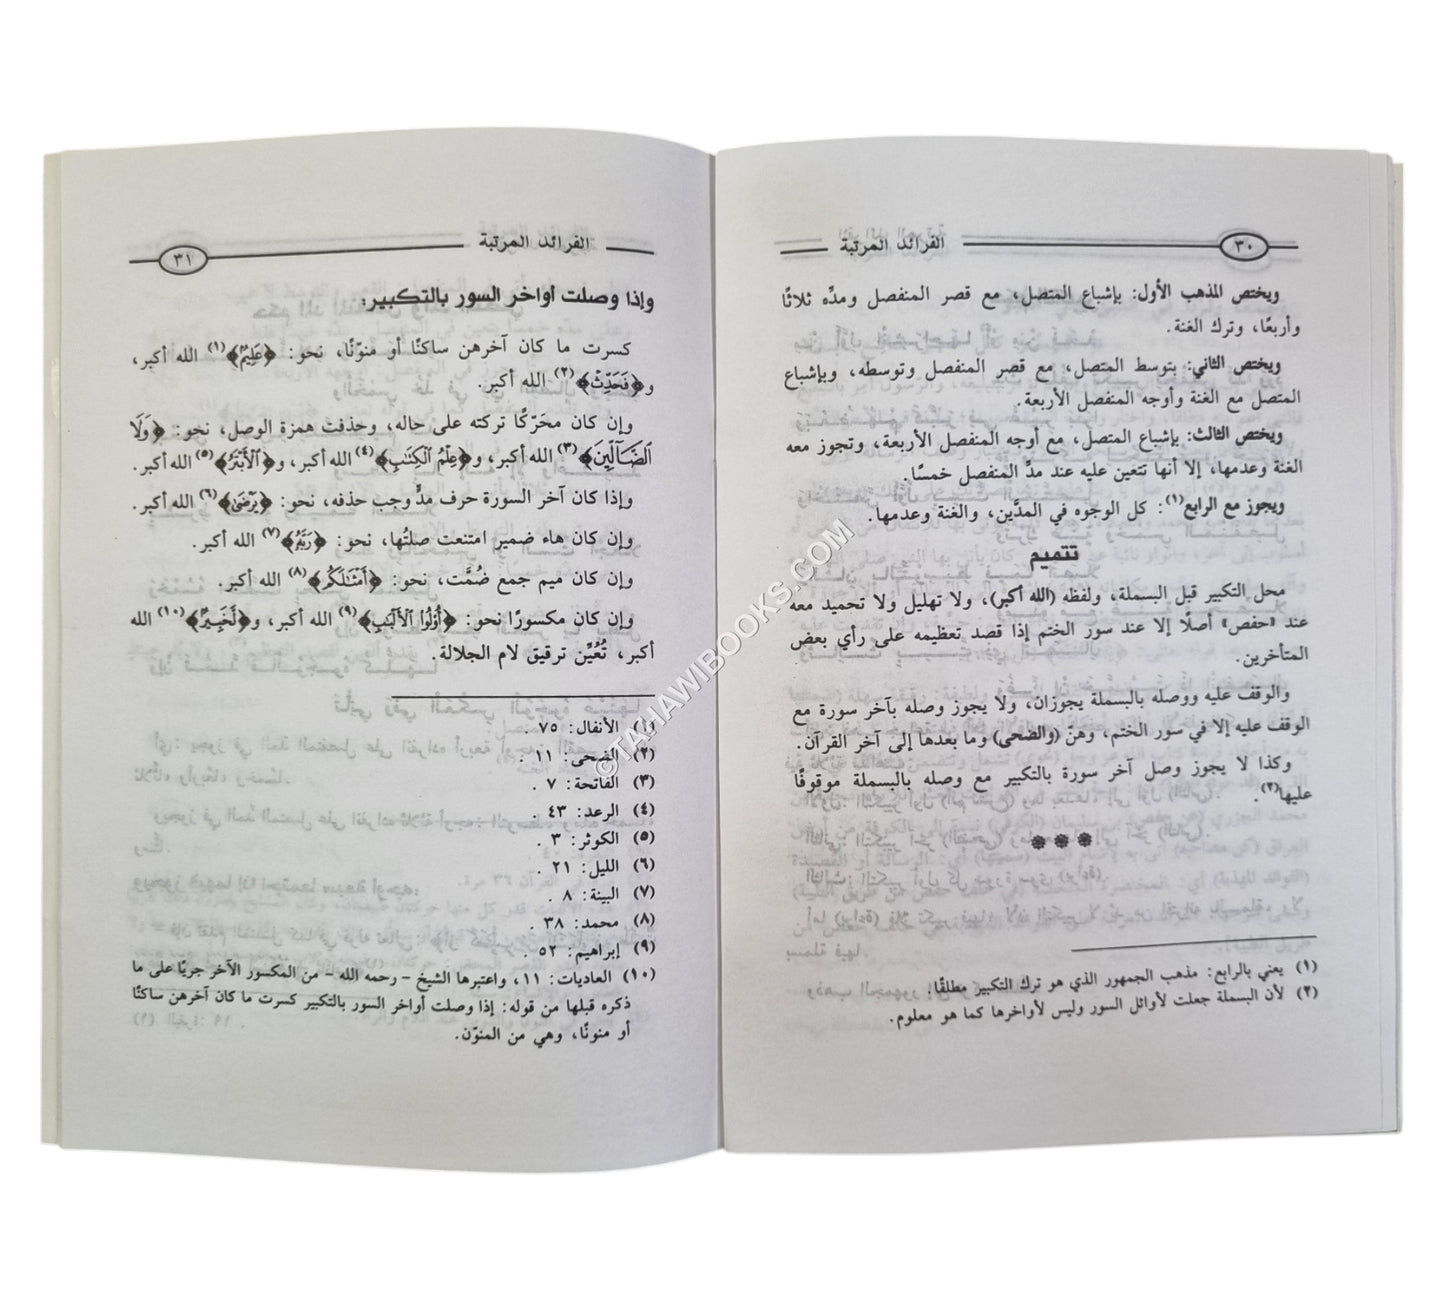 الفرائد المرتبة
٣٠
ويختص المذهب الأول: بإشباع المتصل، مع قصر المنفصل ومدِّه ثلاثًا
وأربعًا، وترك الغنة.
ويختص الثاني: بتوسط المتصل، مع قصر المنفصل وتوسطه، وبإشباع
المتصل مع الغنة وأوجه المنفصل الأربعة.
ويختص الثالث: بإشباع المتصل، مع أوجه المنفصل الأربعة، وتجوز معه
الغنة وعدمها، إلا أنها تتعين عليه عند مدِّ المنفصل خمسًا.
ويجوز مع الرابع(١): كل الوجوه في المدَّين، والغنة وعدمها.
تتميم
محل التكبير قبل البسملة، ولفظه (الله أكبر)، ولا تهليل ولا تحميد معه
عند «حفص» أصلًا إلا عند سور الختم إذا قصد تعظيمه على رأي بعض
المتأخرين.
والوقف عليه ووصله بالبسملة يجوزان، ولا يجوز وصله بآخر سورة مع
الوقف عليه إلا في سور الختم، وهنّ (والضحى) وما بعدها إلى آخر القرآن.
وكذا لا يجوز وصل آخر سورة بالتكبير مع وصله بالبسملة موقوفًا
عليها(٢).
❋ ❋ ❋
(١) يعني بالرابع: مذهب الجمهور الذي هو ترك التكبير مطلقًا.
(٢) لأن البسملة جعلت لأوائل السور وليس لأواخرها كما هو معلوم.
الفرائد المرتبة
٣١
وإذا وصلت أواخر السور بالتكبير:
كسرت ما كان آخرهن ساكنًا أو منوّنًا، نحو: ﴿عَلِيمٌ﴾(١) الله أكبر،
و﴿فَحَدِّثْ﴾(٢) الله أكبر.
وإن كان محَرّكًا تركته على حاله، وحذفت همزة الوصل، نحو: ﴿وَلَا
ٱلضَّآلِّينَ﴾(٣) الله أكبر، و﴿عِلْمُ ٱلْكِتَٰبِ﴾(٤) الله أكبر، و﴿ٱلْأَبْتَرُ﴾(٥) الله أكبر.
وإذا كان آخر السورة حرف مدٍّ وجب حذفه، نحو: ﴿يَرْضَىٰ﴾(٦) الله أكبر.
وإن كان هاء ضمير امتنعت صلتُها، نحو: ﴿رَبَّهُۥ﴾(٧) الله أكبر.
وإن كان ميم جمع ضُمَّت، نحو: ﴿أَمْثَٰلَكُم﴾(٨) الله أكبر.
وإن كان مكسورًا نحو: ﴿أُوْلُوا۟ ٱلْأَلْبَٰبِ﴾(٩) الله أكبر، و﴿لَّخَبِيرٌ﴾(١٠) الله
أكبر، تُعُيِّن ترقيق لام الجلالة.
(١) الأنفال: ٧٥ .
(٢) الضحى: ١١ .
(٣) الفاتحة: ٧ .
(٤) الرعد: ٤٣ .
(٥) الكوثر: ٣ .
(٦) الليل: ٢١ .
(٧) البينة: ٨ .
(٨) محمد: ٣٨ .
(٩) إبراهيم: ٥٢ .
(١٠) العاديات: ١١، واعتبرها الشيخ - رحمه الله - من المكسور الآخر جريًا على ما
ذكره قبلها من قوله: إذا وصلت أواخر السور بالتكبير كسرت ما كان آخرهن ساكنًا
أو منونًا، وهي من المنوّن.
©TAHAWIBOOKS.COM